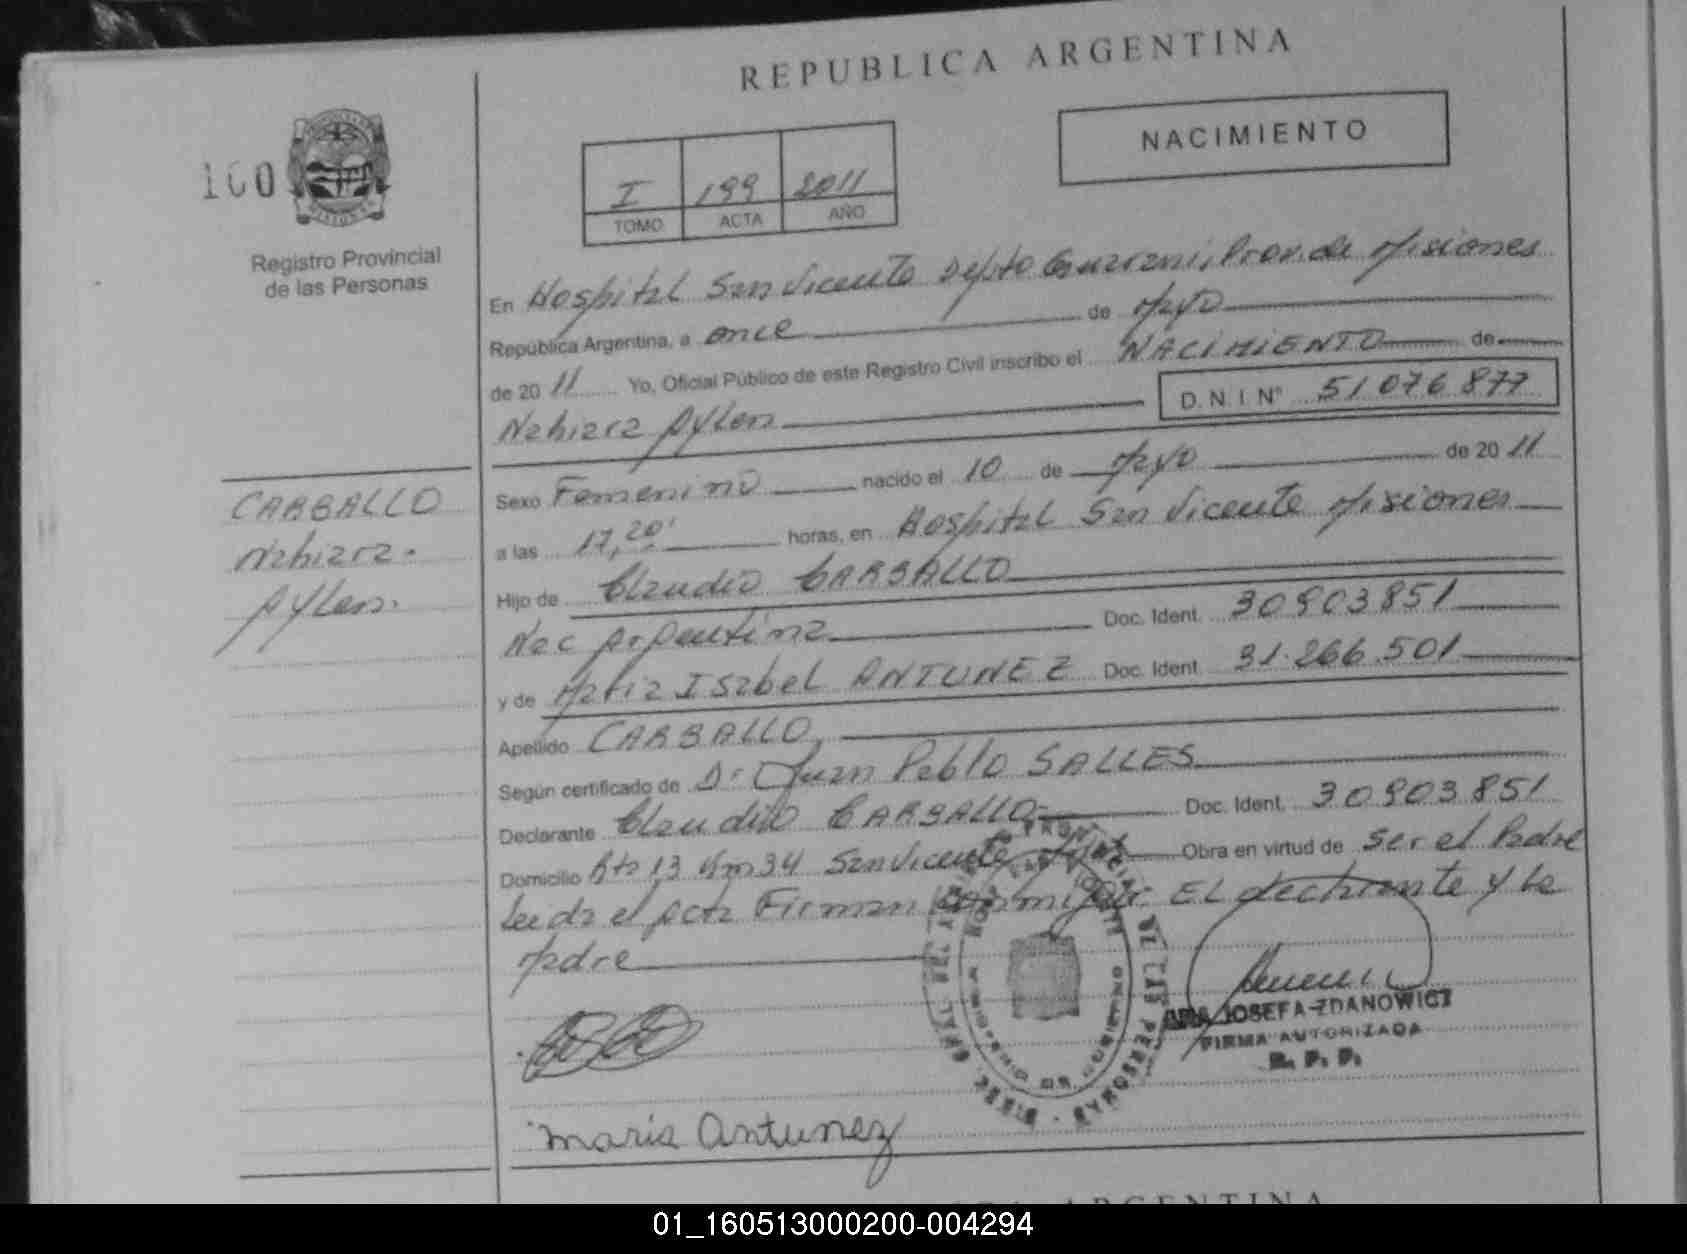 REPUBLICA ARGENTINA
NACIMIENTO
100
I 199 2011
TOMO ACTA AÑO
Registro Provincial
de las Personas
En Hospital San Vicente Depto Guarani, Prov. de Misiones
República Argentina, a once de Mayo
de 20 11 Yo, Oficial Público de este Registro Civil inscribo el NACIMIENTO de
Nahiara Aylen D. N. I. Nº 51 076 877
Sexo Femenino nacido el 10 de Mayo de 20 11
a las 17,20' horas, en Hospital San Vicente Misiones
Hijo de Claudio CARBALLO
Nac Argentina Doc. Ident. 30903851
y de Maria Isabel ANTUNEZ Doc. Ident. 31.266.501
Apellido CARBALLO
Según certificado de Dr Juan Pablo SALLES
Declarante Claudio CARBALLO Doc. Ident. 30903851
Domicilio Rta 13 Km 34 San Vicente Obra en virtud de Ser el Padre
Leida el Acta Firman El declarante y la
Madre
CARBALLO
Nahiara.
Aylen.
JOSEFA ZDANOWICZ
FIRMA AUTORIZADA
R. P. P.
DE LAS PERSONAS
Maria Antunez
ARGENTINA
01_160513000200-004294